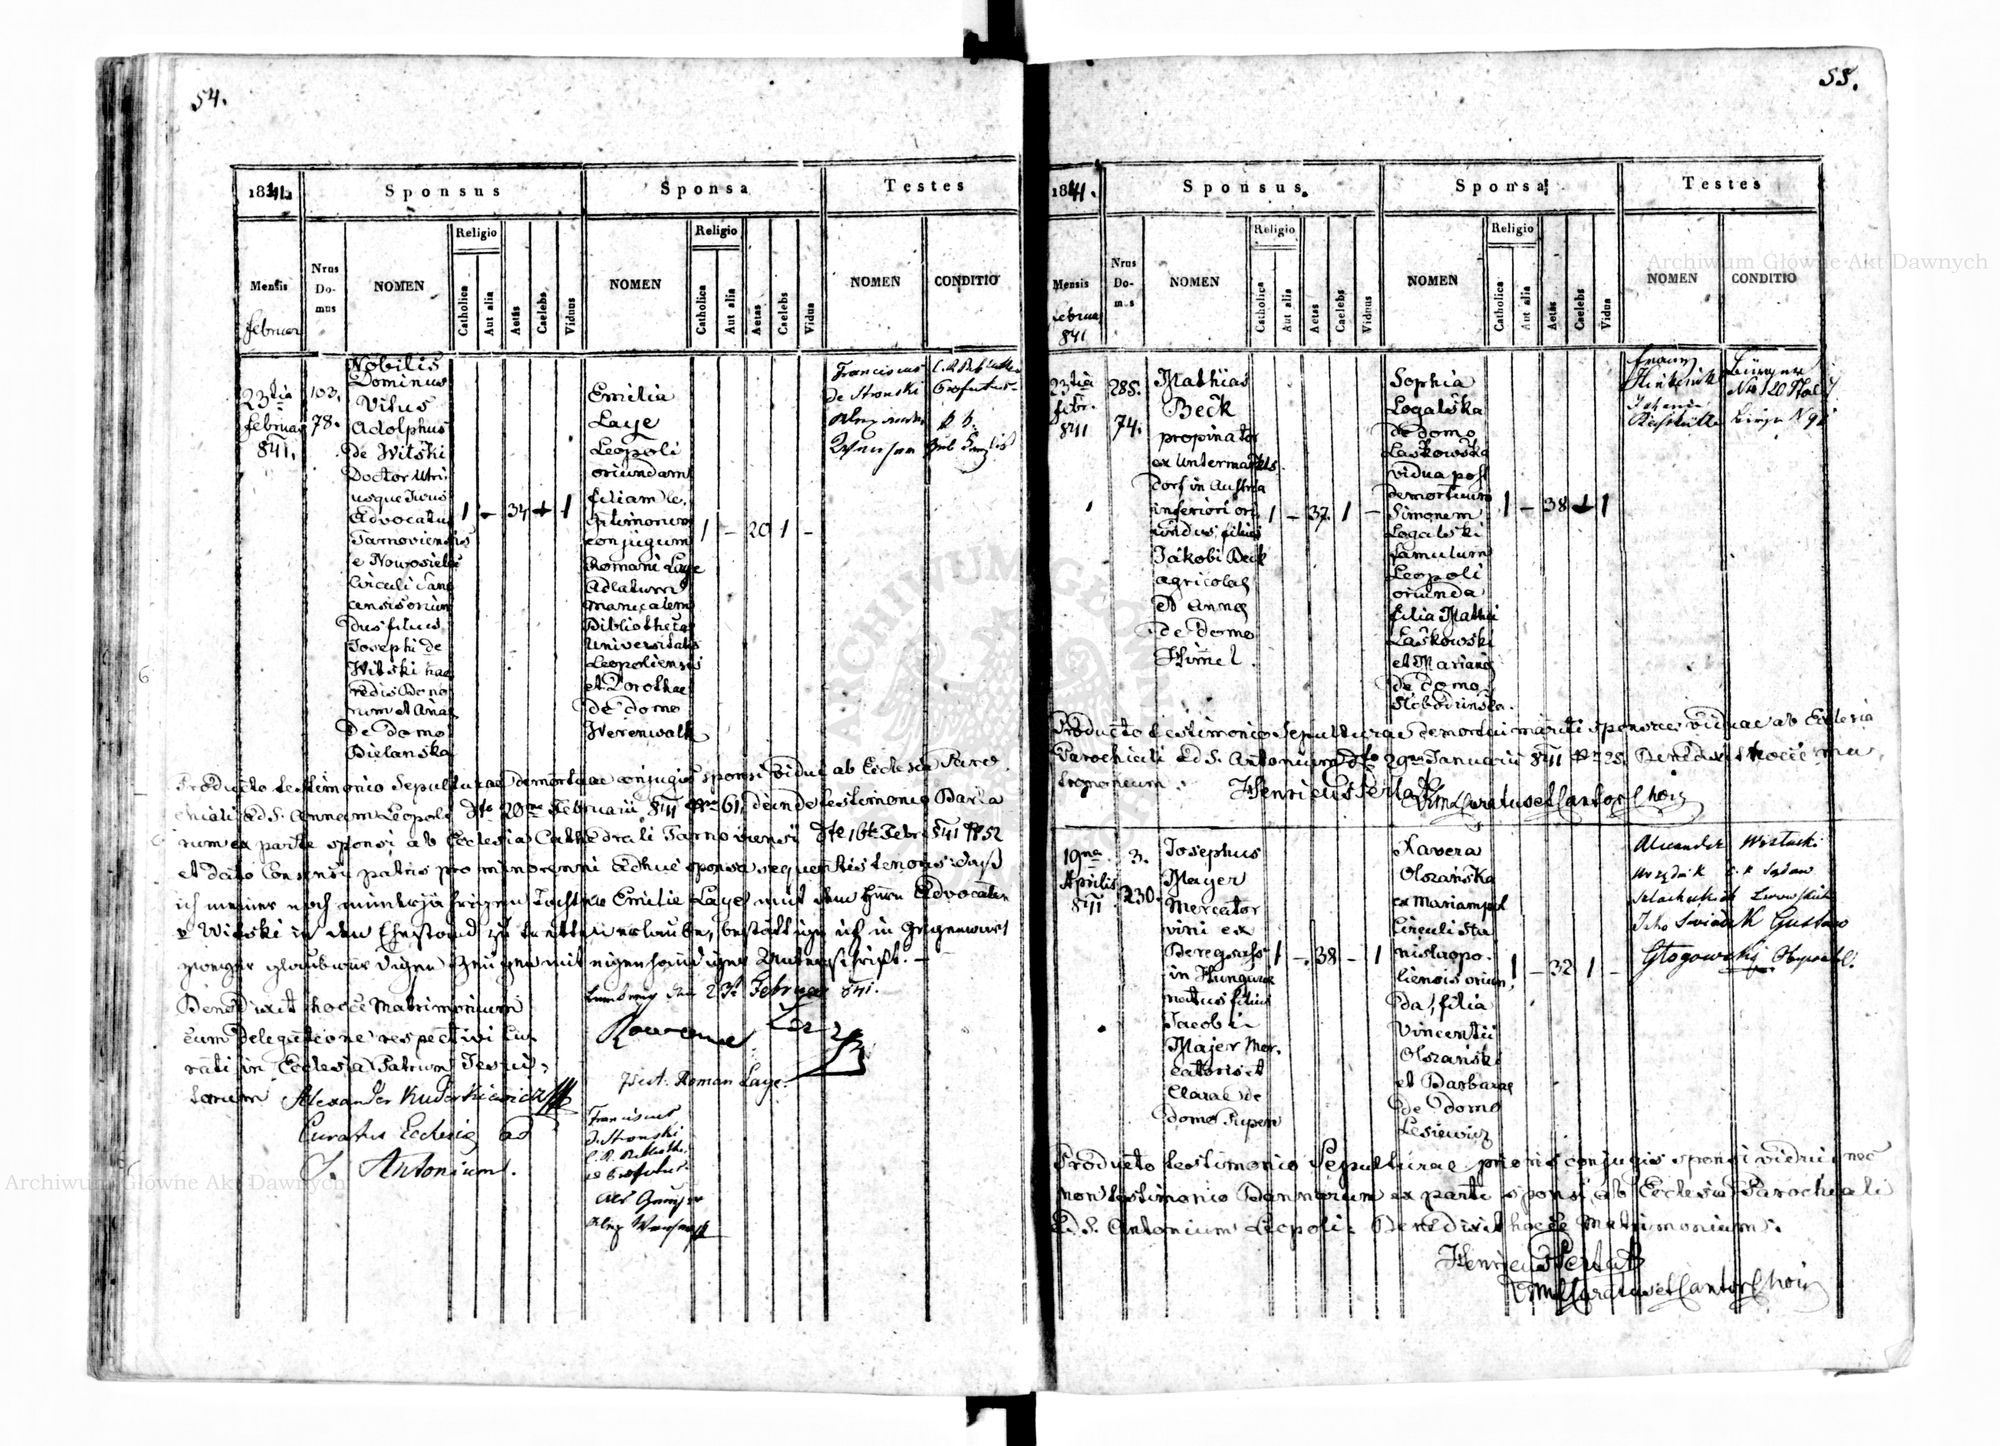 54.
1841.
Sponsus
Sponsa
Testes
Mensis
Februar
Nrus
Do-
mus
NOMEN
Religio
Catholica
Aut alia
Aetas
Caelebs
Viduus
NOMEN
Religio
Catholica
Aut alia
Aetas
Caelebs
Vidua
NOMEN
CONDITIO
23tia
Februar
841.
103.
78.
Nobilis
Dominus
Vitus
Adolphus
de Witski
Doctor Utri
usque Juris
Advocatus
Tarnoviensis
e Nowosielce
Circuli Sano
censis oriun
dus filius
Josephi de
Witski hae
redis Bono
rum et Annae
de domo
Bielanska
1 - 34 + 1
Emilia
Laye
Leopoli
oriundam
filiam le.
gitimorum
conjugum
Romani Laye
Adlatum
manualem
Bibliothecae
Universitatis
Leopoliensis
et Dorothae
de domo
Herenwalk
1 - 20 1 -
Franciscus
de Stronski
Producto testimonio Sepulturae demortuae conjugis sponsi vidui ab Ecclesia Paro
chiali Ad S. Annam Leopoli dto 20ma Februarii 841 Nro 61, deinde testimonio Banno
rum ex parte sponsi ab Ecclesia Cathedrali Tarnoviensi dto 16ta Febr 841 N 52
et dato Consensu patris pro minorenni adhuc sponsa sequentis tenoris: daß
ich meiner noch minderjährigen Tochter Emilie Laye mit dem Herrn Advocaten
v Witski in den Ehestand zu tretten erlaube, bestättige ich in Gegenwart
zweyer glaubwürdigen Zeugen mit eigenhändiger Unterschrift. -
Lemberg den 23t Februar 841.
Benedixit hocce Matrimonium
cum delegatione respectivi Cu
rati in Ecclesia Patrum Jesui,
tarum Alexander Kuderkiewicz
Curatus Ecclesiae ad
S. Antonium.
Roman Laye.
Franciscus
de Stronski
55.
1841.
Sponsus.
Sponsa
Testes
Mensis
Februar
841
Nrus
Do-
mus
NOMEN
Religio
Catholica
Aut alia
Aetas
Caelebs
Viduus
NOMEN
Religio
Catholica
Aut alia
Aetas
Caelebs
Vidua
NOMEN
CONDITIO
23tia
Febr.
841
285.
74.
Mathias
Beck
propinator
ex Untermarkts
dorf in Austria
inferiori ori
undus, filius
Jakobi Beck
agricolae
et Annae
de domo
Himel.
1 - 37. 1 -
Sophia
Logalska
de domo
Laskowska
vidua post
demortuum
Simonem
Logalski
famulum
Leopoli
oriunda
filia Mathei
Laskowski
et Marianae
de domo
Slobodzinska.
1 - 38 + 1
Franz
Bürger
Producto testimonio Sepulturae demortui mariti sponsae viduae ab Ecclesia
Parochiali Ad S. Antonium dto 29na Januarii 841 Nr 25. Benedixit hocce ma
trimonium. Henricus Perlat
Curatus et Cantor Chori
19na
Aprilis
841
3.
230.
Josephus
Mayer
Mercator
vini ex
Beregsass
in Hungaria
natus filius
Jacobi
Majer Mer.
catoris et
Clarae de
domo Supen
1 - 38 - 1
Xavera
Olszańska
ex Mariampol
Circuli Sta
nislaopo
liensis oriun,
da, filia
Vincentii
Olszański
et Barbarae
de domo
Lesiewicz
1 - 32 1 -
Alexander
Jako Świadek Gustaw
Głogowski
Producto testimonio Sepulturae prioris conjugis sponsi vidui nec
non testimonio Bannorum ex parte sponsi, ab Ecclesia Parochiali
Ad S. Antonium Leopoli. Benedixit hocce Matrimonium.
Henricus Perlat
Curatus et Cantor Chori
Archiwum Główne Akt Dawnych
Archiwum Główne Akt Dawnych